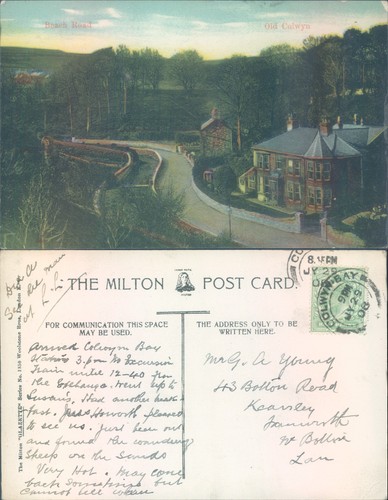 Beach Road
Old Colwyn
THE MILTON POST CARD.
FOR COMMUNICATION THIS SPACE
MAY BE USED.
THE ADDRESS ONLY TO BE
WRITTEN HERE.
The Milton "GLAZETTE" Series No. 1553 Woolstone Bros., London E.C.
8.15PM
JY 29
COLWYN BAY
9PM
JY 29
Arrived Colwyn Bay
3. p.m. No Excursion
Train until 12-40 from
the Exchange. Went up to
Had another break-
fast. Howorth pleased
to see us. Just been out
and found the wandering
sheep on the Sands
Very Hot. May come
back sometime but
cannot tell when
Mr G. A Young
43 Bolton Road
Kearsley
Farnworth
Nr Bolton
Lan